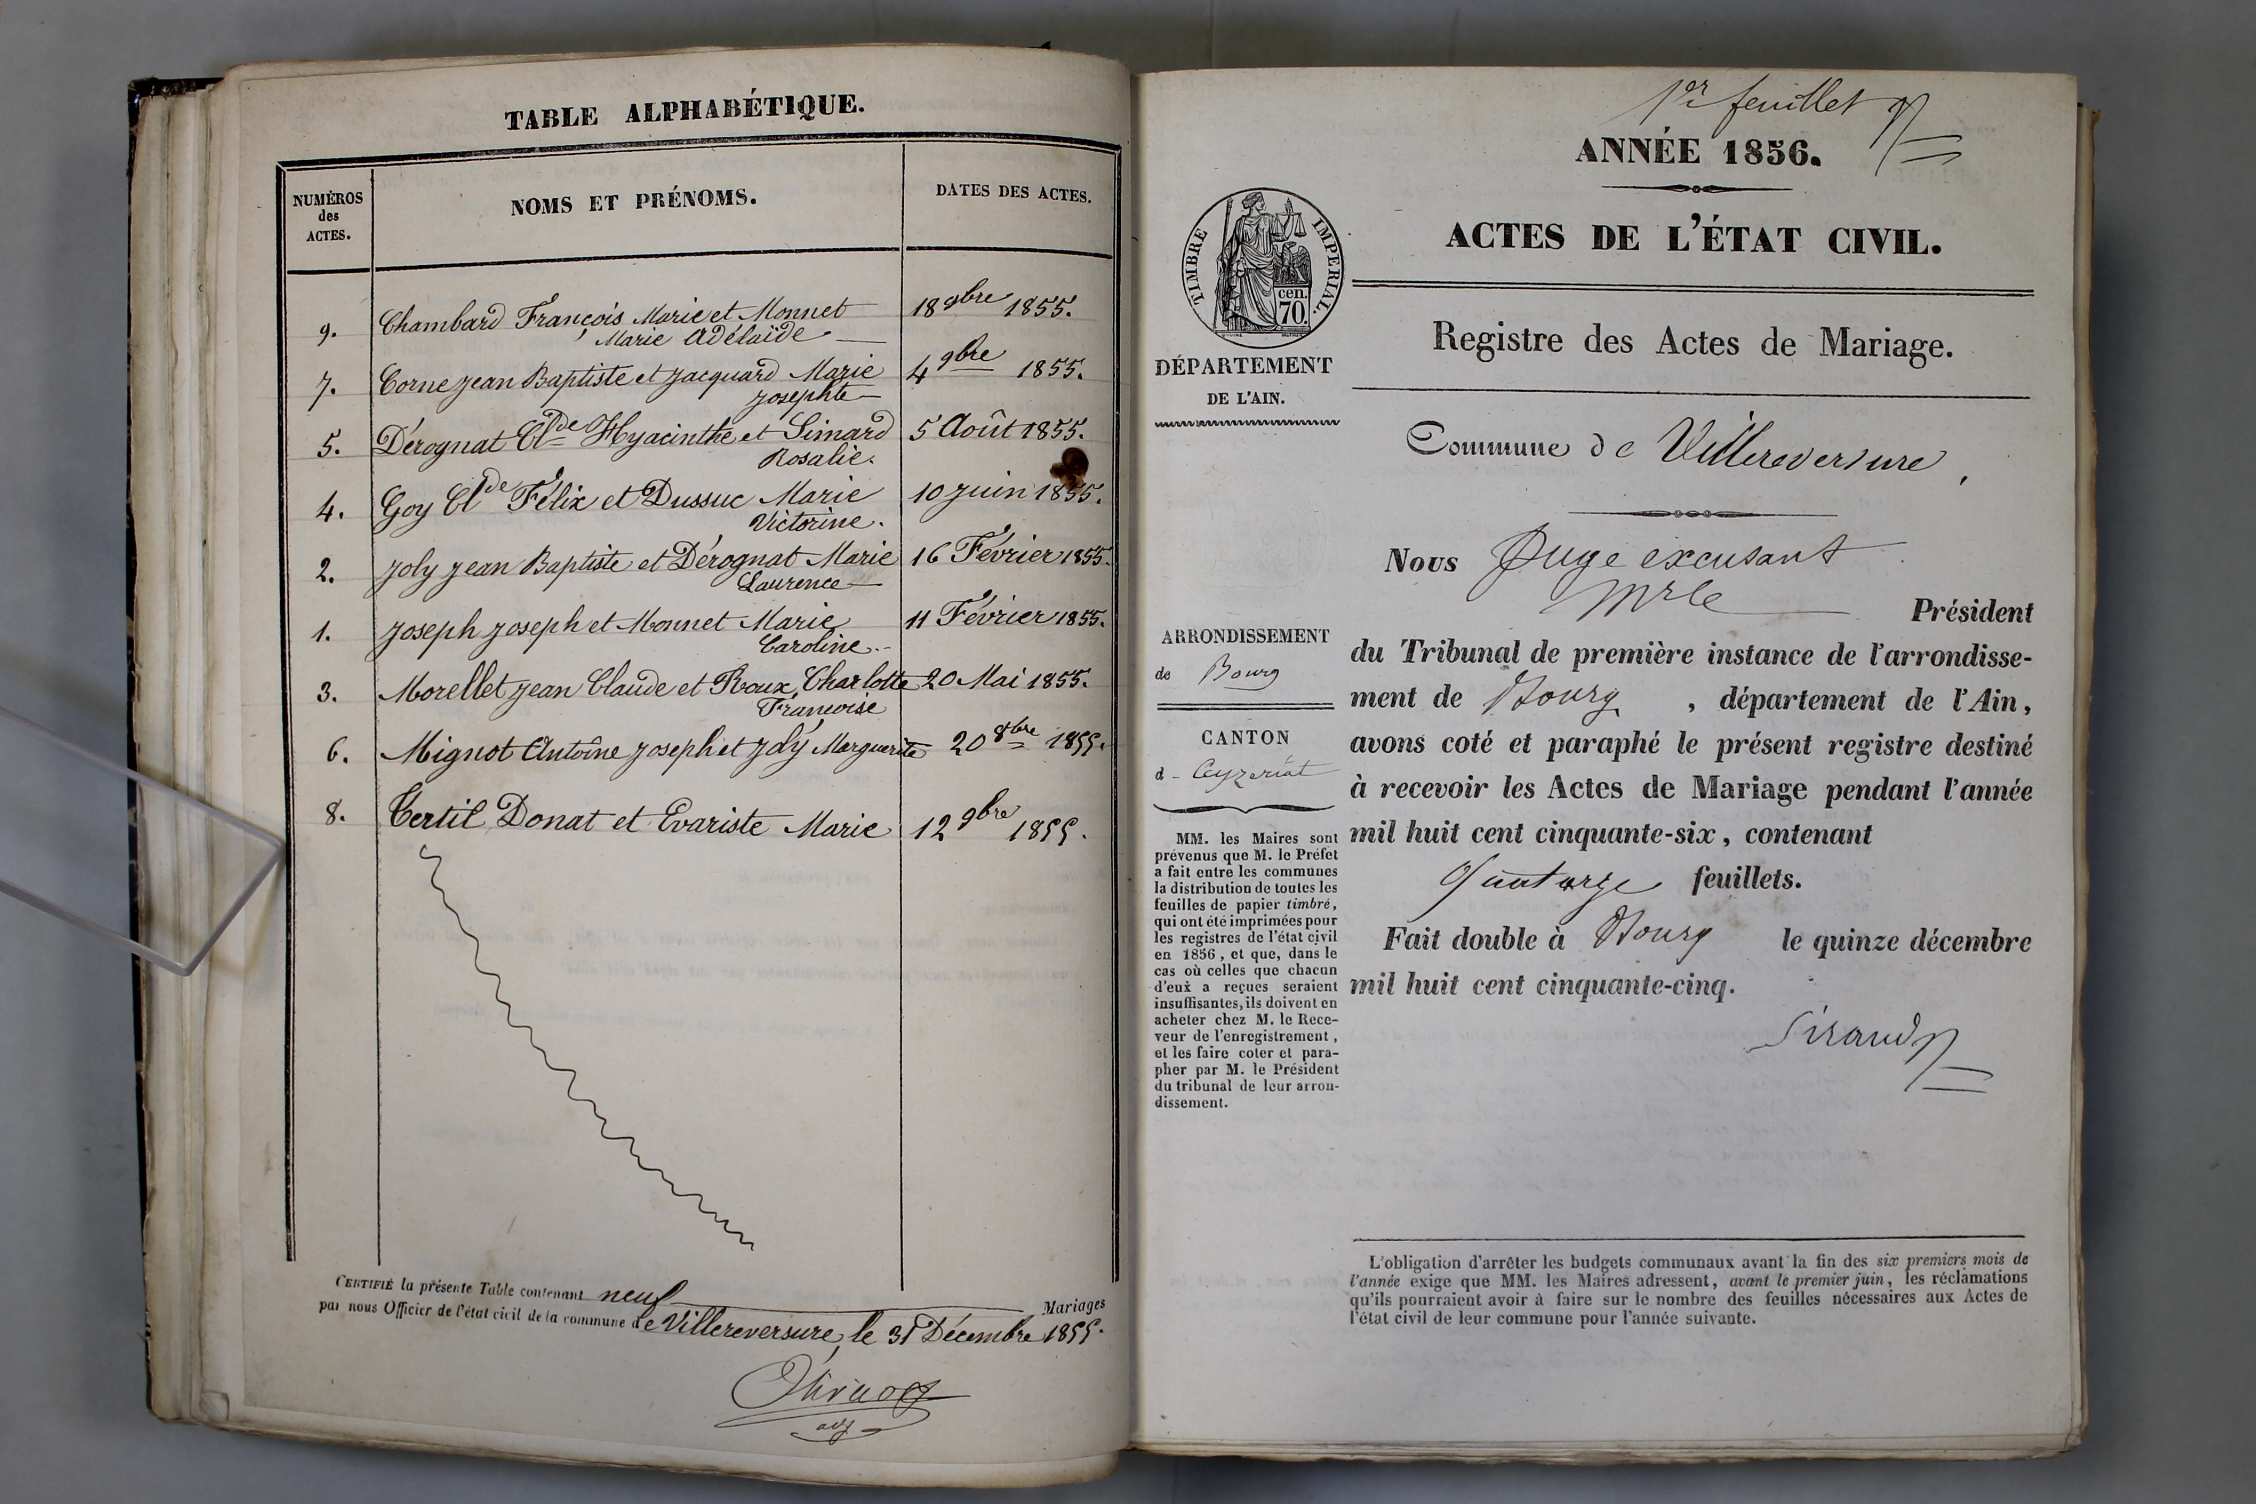 TABLE ALPHABÉTIQUE.
NUMÉROS
des
ACTES.
NOMS ET PRÉNOMS.
DATES DES ACTES.
9. Chambard François Marie et Monnet 18 9bre 1855.
Marie Adélaïde
7. Corne Jean Baptiste et Jacquard Marie 4 9bre 1855.
Josephte
5. Dérognat Clde Hyacinthe et Simard 5 Août 1855.
Rosalie.
4. Goy Clde Félix et Dussuc Marie 10 juin 1855.
Victorine.
2. Joly Jean Baptiste et Dérognat Marie 16 Février 1855.
Laurence
1. Joseph Joseph et Monnet Marie 11 Février 1855.
Caroline.
3. Morellet Jean Claude et Roux, Charlotte 20 Mai 1855.
Françoise
6. Mignot Antoîne Joseph et Joly Marguerite 20 8bre 1855.
8. Tertil Donat et Evariste Marie 12 9bre 1855.
CERTIFIÉ la présente Table contenant neuf Mariages
par nous Officier de l'état civil de la commune de Villereversure, le 31 Décembre 1855.
adj
1er feuillet
ANNÉE 1856.
ACTES DE L'ÉTAT CIVIL.
TIMBRE IMPERIAL.
cen.
70.
Registre des Actes de Mariage.
DÉPARTEMENT
DE L'AIN.
Commune de Villereversure,
Nous Juge excusant
Mr le Président
du Tribunal de première instance de l'arrondisse-
ment de Bourg, département de l'Ain,
avons coté et paraphé le présent registre destiné
à recevoir les Actes de Mariage pendant l'année
mil huit cent cinquante-six, contenant
feuillets.
Fait double à Bourg le quinze décembre
mil huit cent cinquante-cinq.
Sirand
ARRONDISSEMENT
de Bourg
CANTON
d- Ceyzeriat
MM. les Maires sont
prévenus que M. le Préfet
a fait entre les communes
la distribution de toutes les
feuilles de papier timbré,
qui ont été imprimées pour
les registres de l'état civil
en 1856, et que, dans le
cas où celles que chacun
d'eux a reçues seraient
insuffisantes, ils doivent en
acheter chez M. le Rece-
veur de l'enregistrement,
et les faire coter et para-
pher par M. le Président
du tribunal de leur arron-
dissement.
L'obligation d'arrêter les budgets communaux avant la fin des six premiers mois de
l'année exige que MM. les Maires adressent, avant le premier juin, les réclamations
qu'ils pourraient avoir à faire sur le nombre des feuilles nécessaires aux Actes de
l'état civil de leur commune pour l'année suivante.